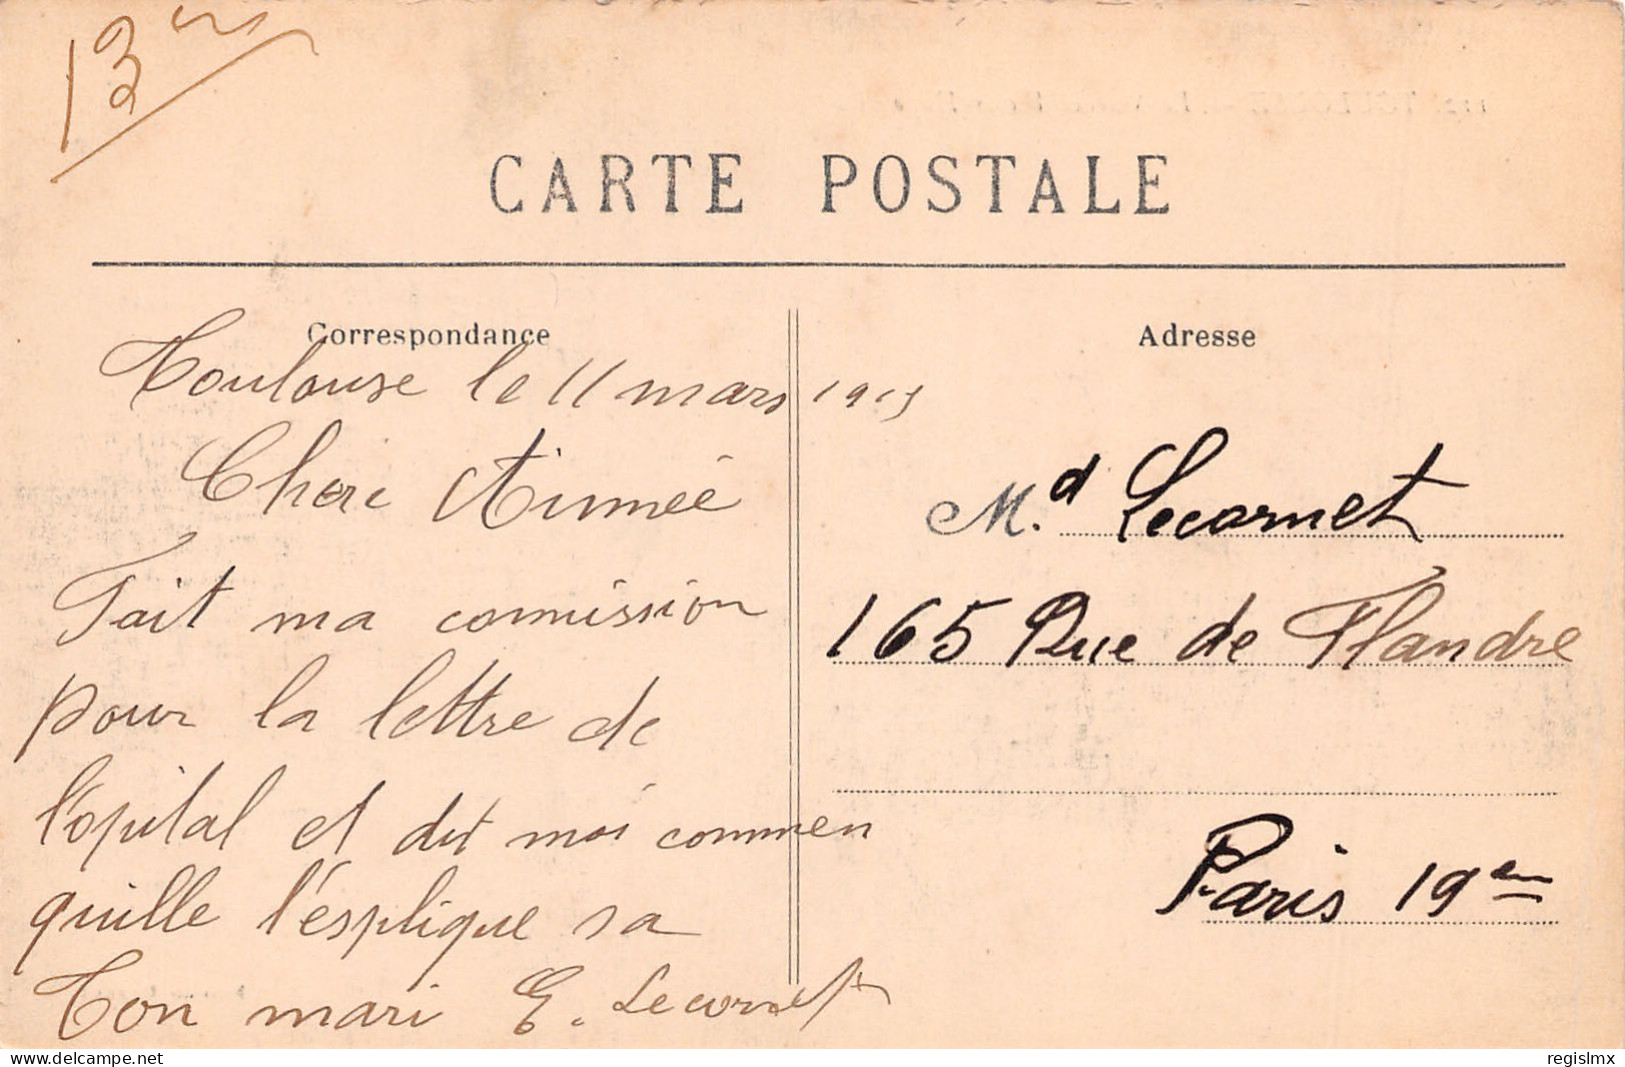 13 em
CARTE POSTALE
Correspondance
Adresse
Toulouse le 11 mars 1915
Chere Aimée
Fait ma comission
pour la lettre de
l'opital et dit moi commen
quille l'esplique sa
Ton mari E. Lecornet
M.d Lecornet
165 Rue de Flandre
Paris 19em
www.delcampe.net
regislmx